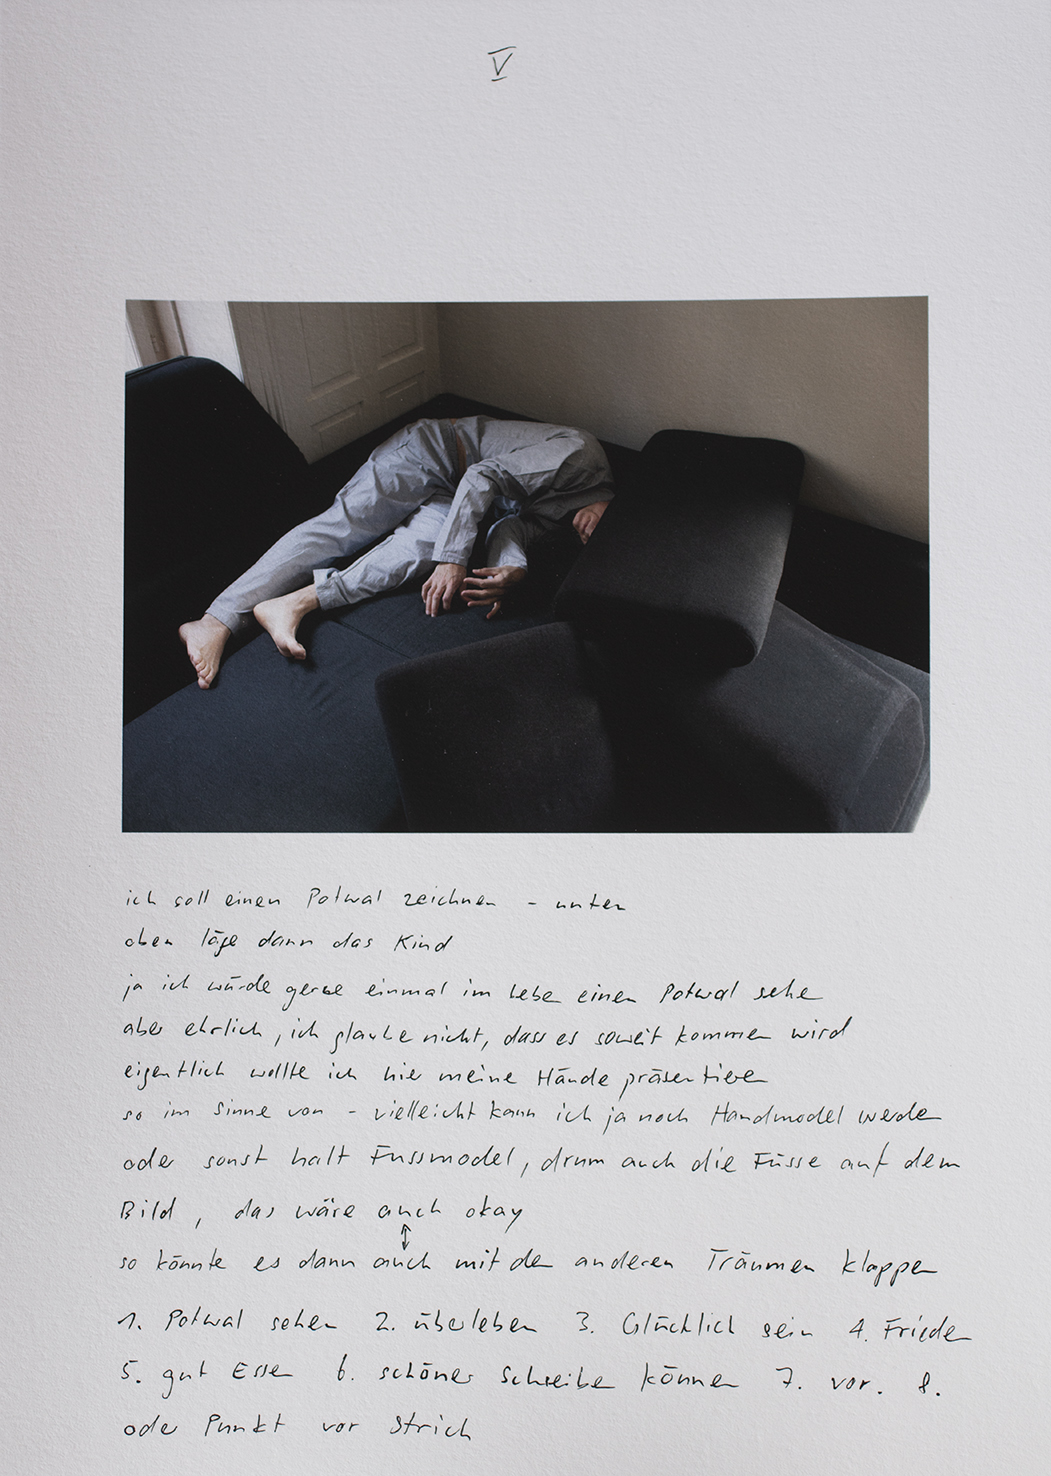 V
ich soll einen Potwal zeichnen - unten
oben läge dann das Kind
ja ich würde gerne einmal im Leben einen Potwal sehen
aber ehrlich, ich glaube nicht, dass es soweit kommen wird
eigentlich wollte ich hier meine Hände präsentieren
so im Sinne von - vielleicht kann ich ja noch Handmodel werden
oder sonst halt Fussmodel, drum auch die Füsse auf dem
Bild, das wäre auch okay
↕
so könnte es dann auch mit den anderen Träumen klappen
1. Potwal sehen 2. überleben 3. Glücklich sein 4. Frieden
5. gut Essen 6. schöner Schreiben können 7. vor. 8.
oder Punkt vor Strich